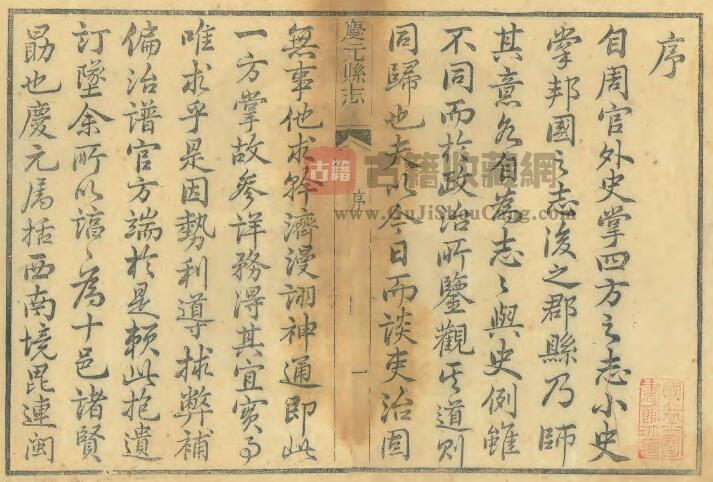 序
自周官外史掌四方之志小史
掌邦國之志後之郡縣乃師
其意各自為志〻與史例雖
不同而於政治所鑒觀其道則
同歸也夫以今日而談吏治固
慶元縣志
序
一
無事他求幹濟漫詡神通即此
一方掌故參詳務得其宜實事
唯求乎是因勢利導捄弊補
偏治譜官方端於是賴此抱遺
訂墜余所以諄〻為十邑諸賢
勗也慶元属括西南境毘連閩
古籍
古籍收藏網
www.GuJiShouCang.com